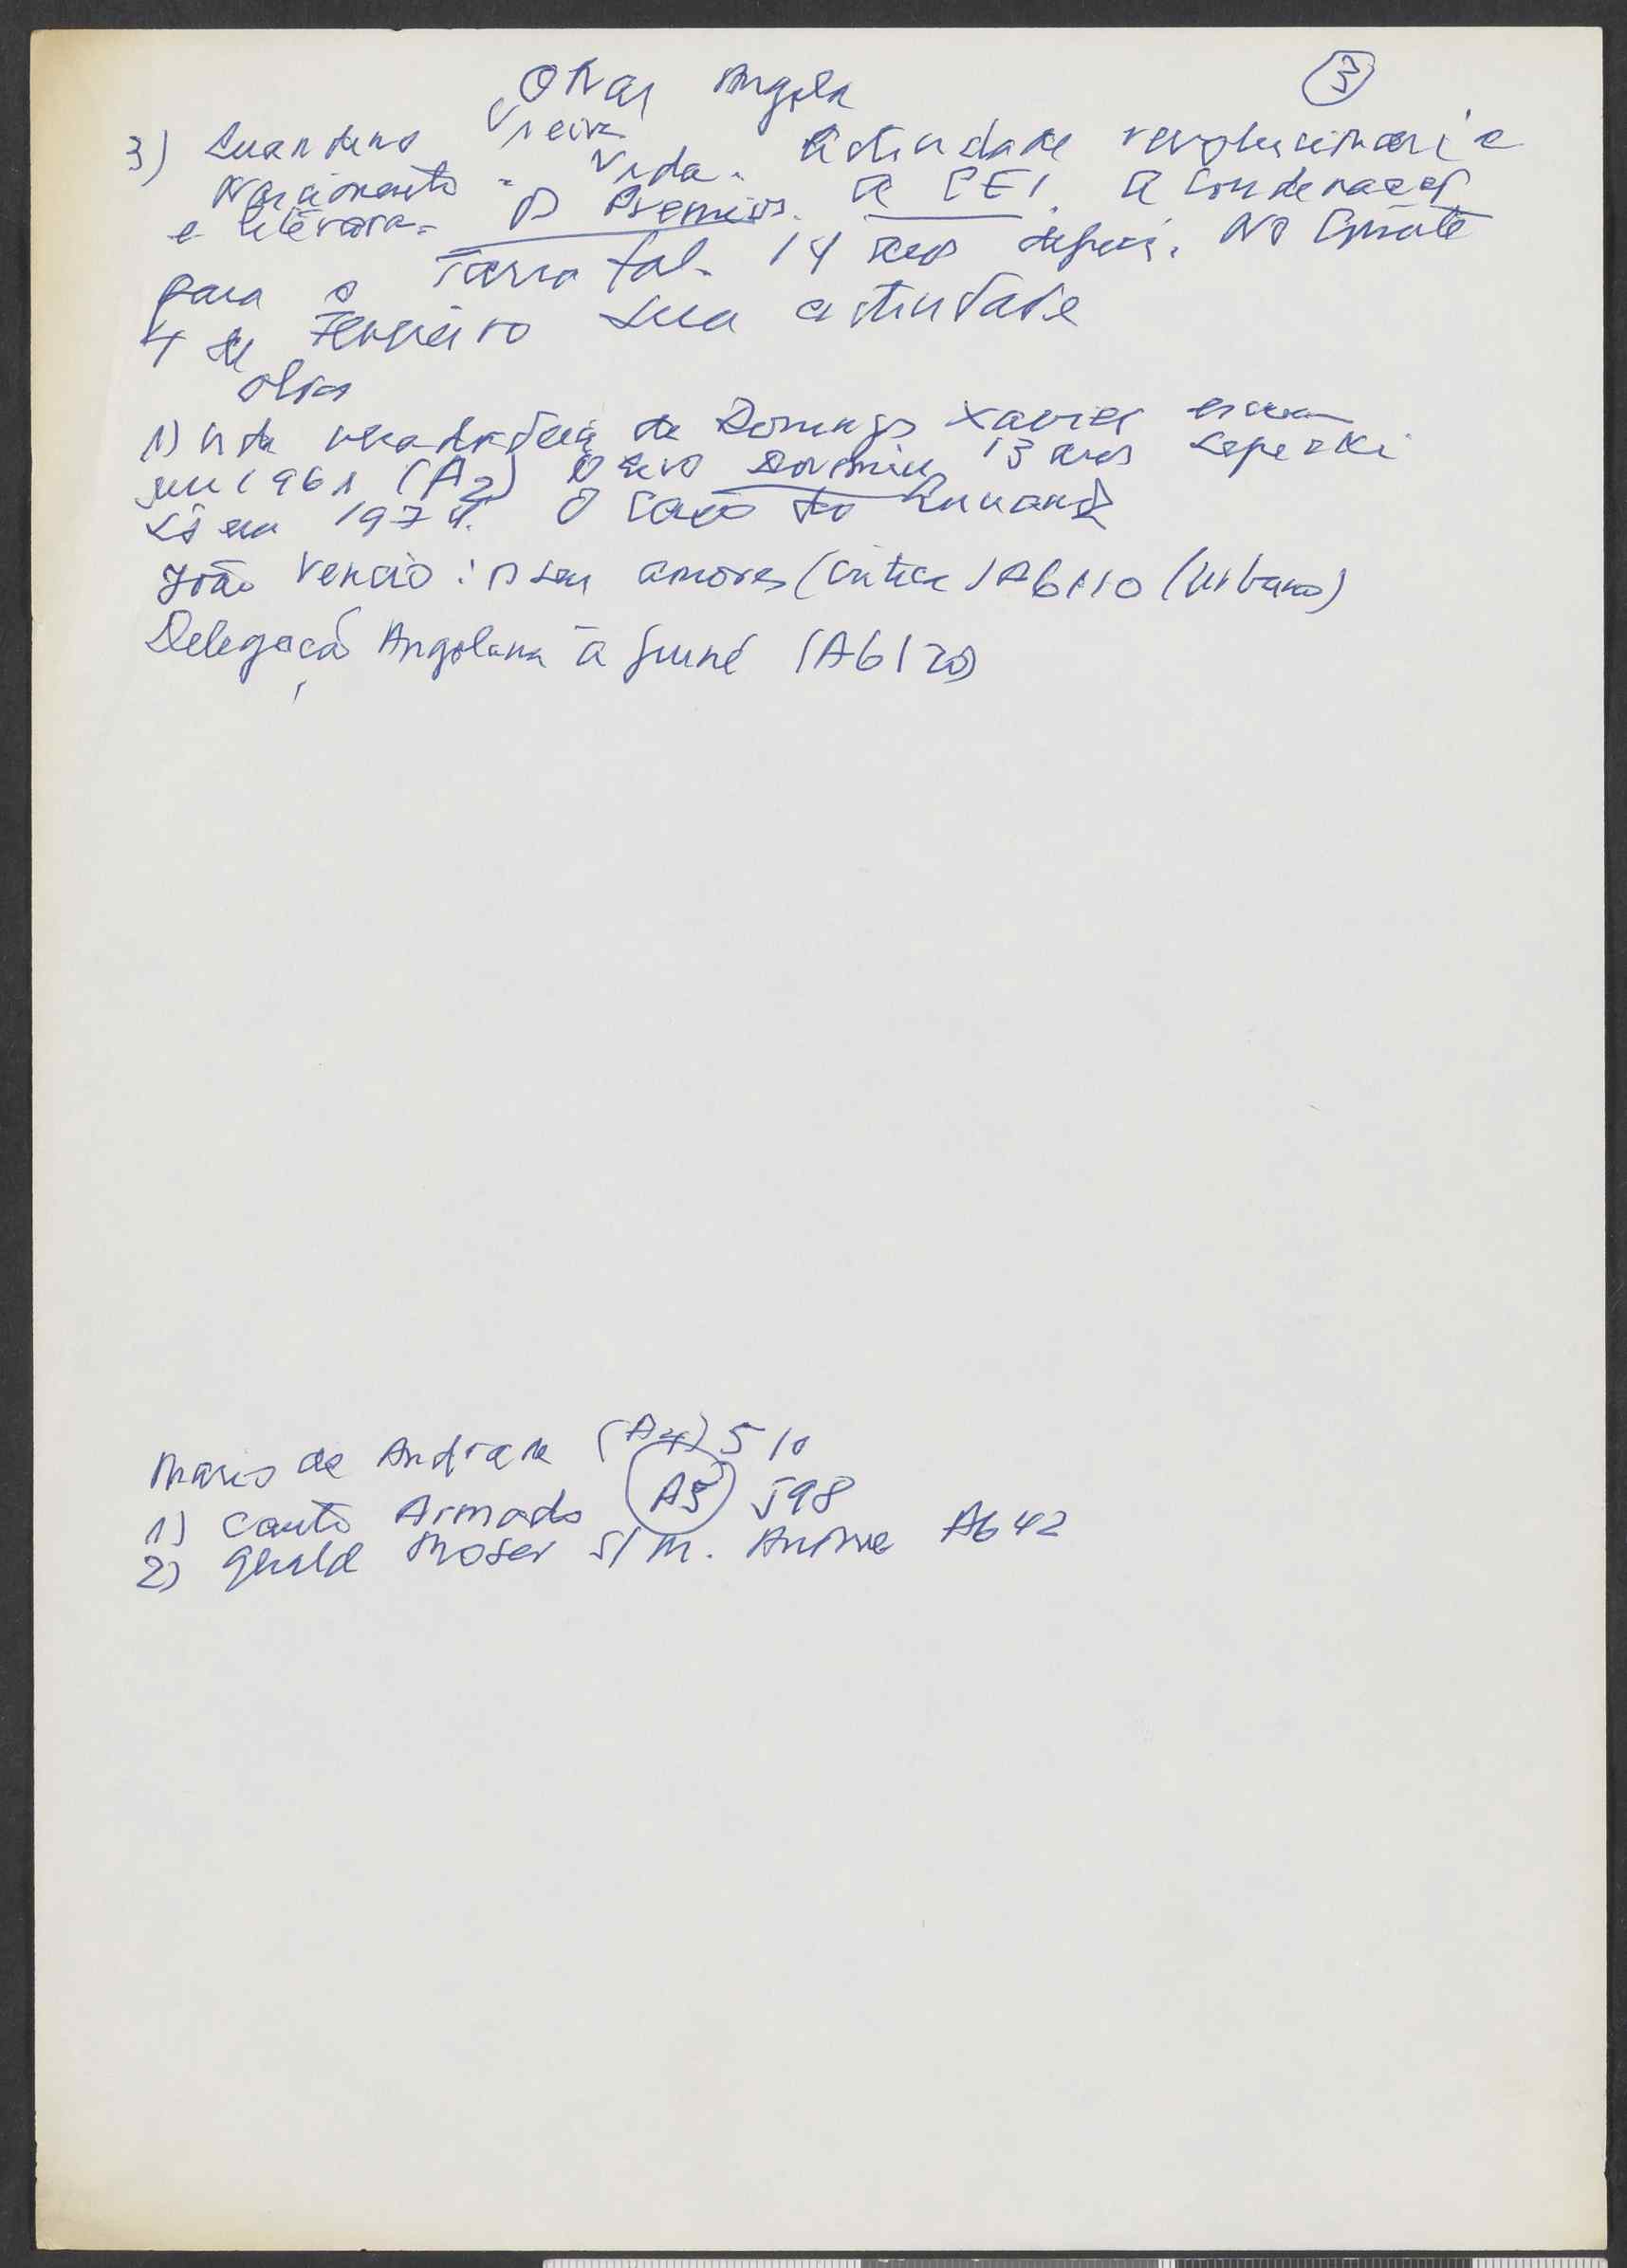 Obras Angola
③
3) Luandino Vieira
Nascimento - Vida. Actividade revolucionaria
e literaria. Os Premios. A CEI. A condenação
para o Tarrafal. 14 anos depois. No Comité
4 de Fevereiro sua actividade
obras
1) Vida verdadeira de Domingos Xavier
1961 (A2) 13 anos
Só em 1974. O caso do
João Vencio: os seus amores (critica) A6110 (Urbano)
Delegação Angolana à Guiné (A6120)
Mario de Andrade (A4) 510
1) Canto Armado A5 598
2) Gerald Moser s/ M. António A642